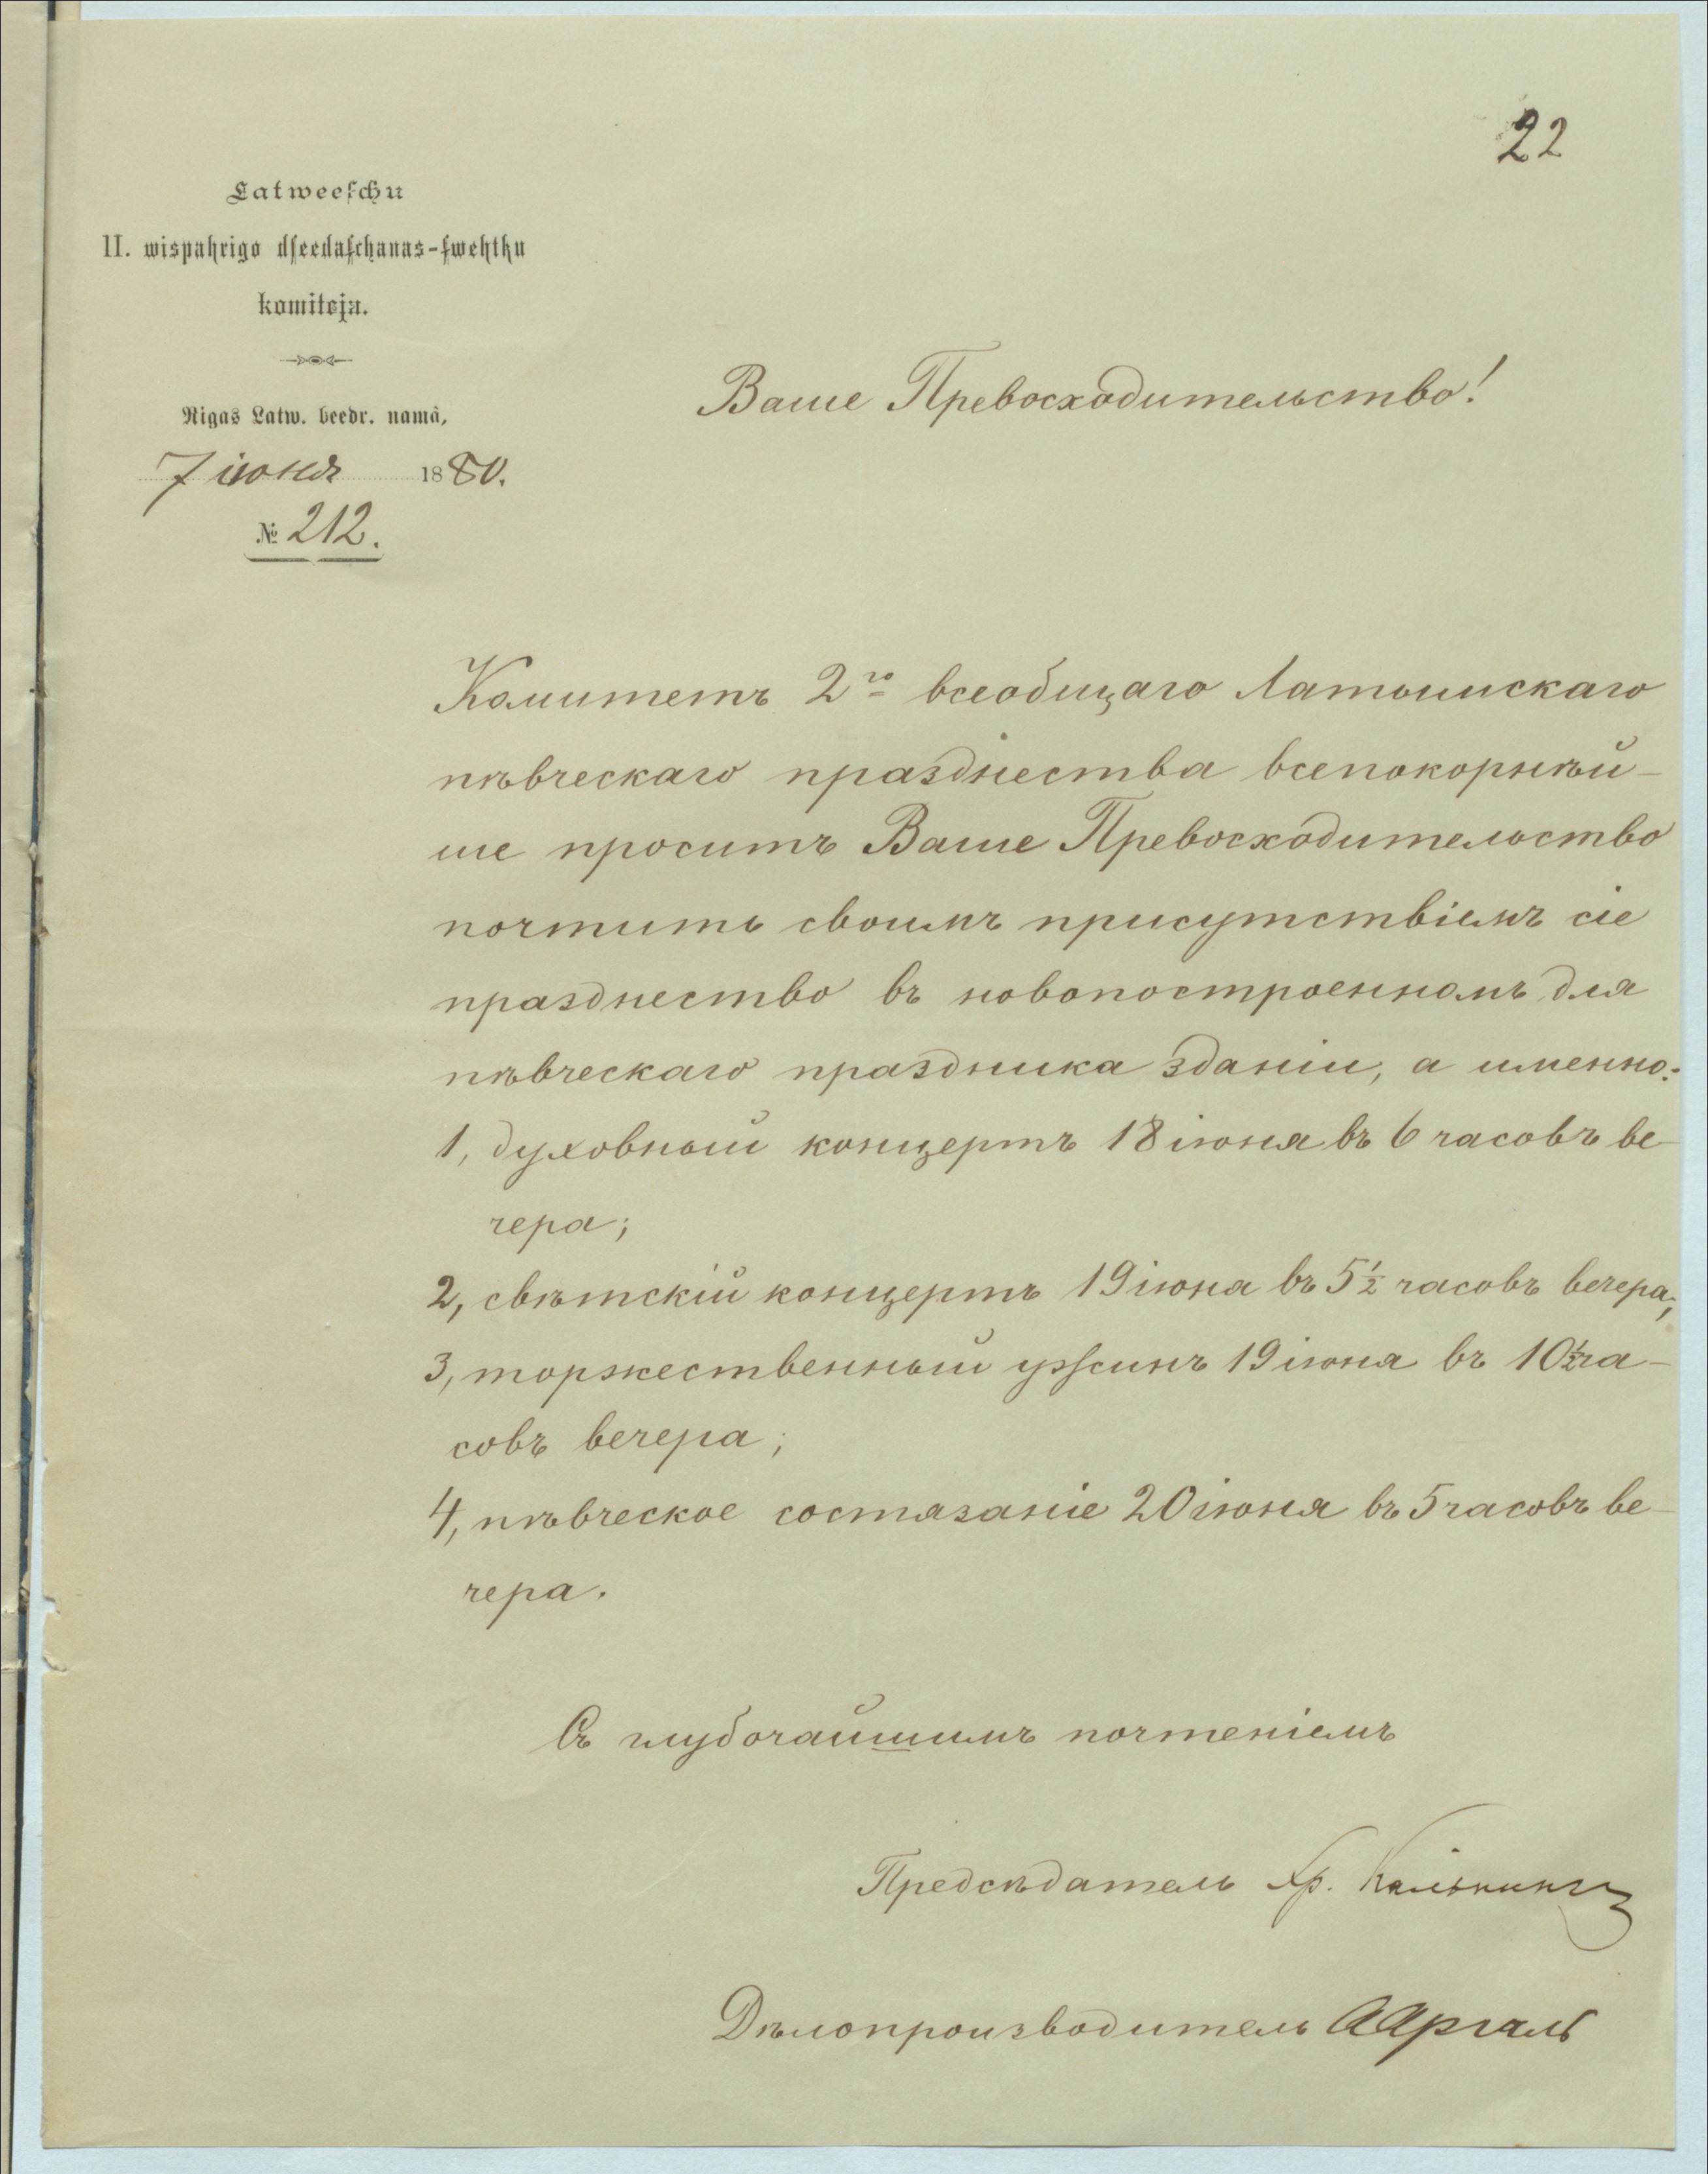 22
Latweeſchu
II. wispahrigo dſeedaſchanas-ſwehtku
komiteja.
Rigas Latw. beedr. namâ,
7 іюня 1880.
№ 212.
Ваше Превосходительство!
Комитетъ 2го всеобщаго Латышскаго
пѣвческаго празднества всепокорнѣй-
ше проситъ Ваше Превосходительство
почтить своимъ присутствіемъ сіе
празднество въ новопостроенномъ для
пѣвческаго праздника зданіи, а именно:
1, духовный концертъ 18 іюня въ 6 часовъ ве-
чера;
2, свѣтскій концертъ 19 іюня въ 5½ часовъ вечера;
3, торжественный ужинъ 19 іюня въ 10½ ча-
совъ вечера;
4, пѣвческое состязаніе 20 іюня въ 5 часовъ ве-
чера.
Съ глубочайшимъ почтеніемъ
Предсѣдатель Хр. Кальнингъ
Дѣлопроизводитель